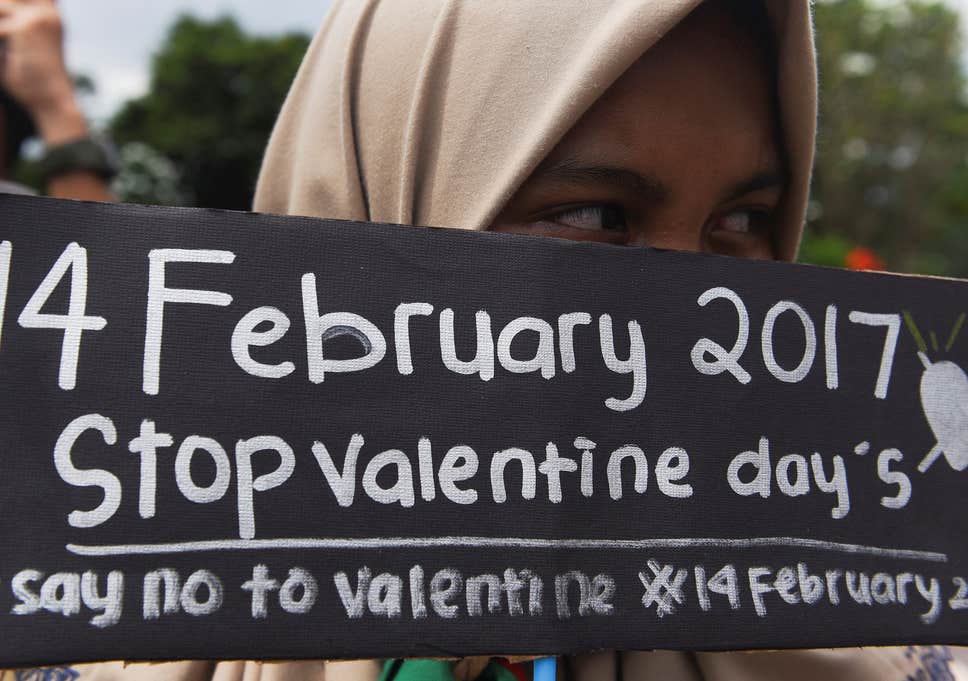 14 February 2017
Stop valentine day's
say no to valentine #14 February 2